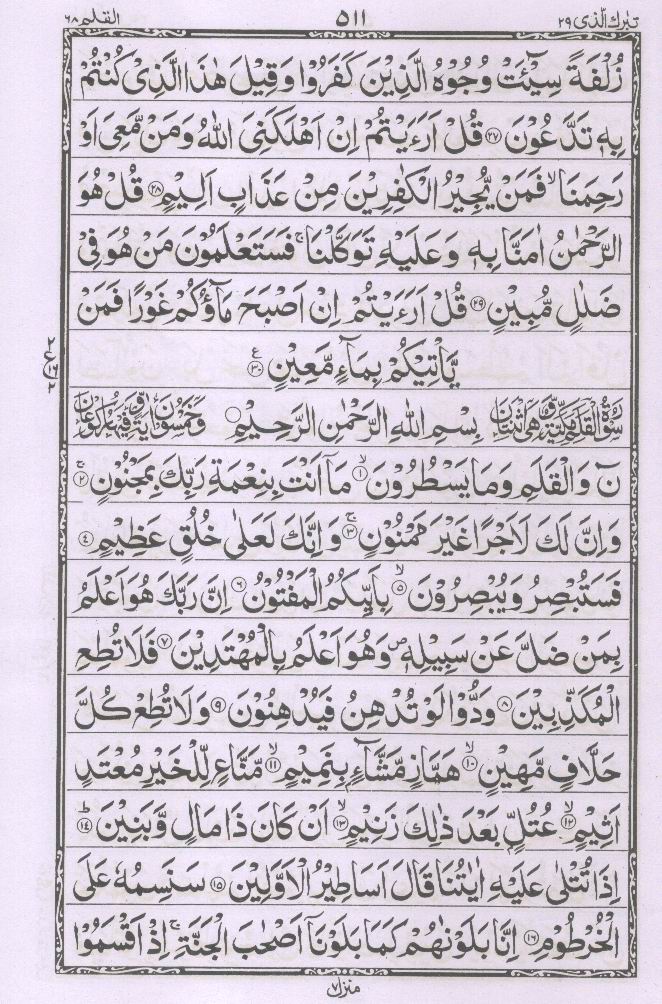 تبٰرك الّذى ٢٩ ٥١١ القلم ٦٨
زُلْفَةً سِيْٓئَتْ وُجُوْهُ الَّذِيْنَ كَفَرُوْا وَقِيْلَ هٰذَا الَّذِىْ كُنْتُمْ
بِهٖ تَدَّعُوْنَ ﴿٢٧﴾ قُلْ اَرَءَيْتُمْ اِنْ اَهْلَكَنِىَ اللّٰهُ وَمَنْ مَّعِىَ اَوْ
رَحِمَنَا ۙ فَمَنْ يُّجِيْرُ الْكٰفِرِيْنَ مِنْ عَذَابٍ اَلِيْمٍ ﴿٢٨﴾ قُلْ هُوَ
الرَّحْمٰنُ اٰمَنَّا بِهٖ وَعَلَيْهِ تَوَكَّلْنَا ۚ فَسَتَعْلَمُوْنَ مَنْ هُوَ فِىْ
ضَلٰلٍ مُّبِيْنٍ ﴿٢٩﴾ قُلْ اَرَءَيْتُمْ اِنْ اَصْبَحَ مَآؤُكُمْ غَوْرًا فَمَنْ
يَّاْتِيْكُمْ بِمَآءٍ مَّعِيْنٍ ﴿٣٠﴾ ع
٢ ع ١٦ ٢
سُوْرَةُ الْقَلَمِ مَكِّيَّةٌ وَّهِىَ اثْنَتَانِ بِسْمِ اللّٰهِ الرَّحْمٰنِ الرَّحِيْمِ وَخَمْسُوْنَ اٰيَةً وَّفِيْهَا رُكُوْعَانِ
نٓ وَالْقَلَمِ وَمَا يَسْطُرُوْنَ ۙ﴿١﴾ مَآ اَنْتَ بِنِعْمَةِ رَبِّكَ بِمَجْنُوْنٍ ۚ﴿٢﴾
وَاِنَّ لَكَ لَاَجْرًا غَيْرَ مَمْنُوْنٍ ۚ﴿٣﴾ وَاِنَّكَ لَعَلٰى خُلُقٍ عَظِيْمٍ ﴿٤﴾
فَسَتُبْصِرُ وَيُبْصِرُوْنَ ۙ﴿٥﴾ بِاَيِّىكُمُ الْمَفْتُوْنُ ﴿٦﴾ اِنَّ رَبَّكَ هُوَ اَعْلَمُ
بِمَنْ ضَلَّ عَنْ سَبِيْلِهٖ ۖ وَهُوَ اَعْلَمُ بِالْمُهْتَدِيْنَ ﴿٧﴾ فَلَا تُطِعِ
الْمُكَذِّبِيْنَ ﴿٨﴾ وَدُّوْا لَوْ تُدْهِنُ فَيُدْهِنُوْنَ ﴿٩﴾ وَلَا تُطِعْ كُلَّ
حَلَّافٍ مَّهِيْنٍ ۙ﴿١٠﴾ هَمَّازٍ مَّشَّآءٍ بِنَمِيْمٍ ۙ﴿١١﴾ مَّنَّاعٍ لِّلْخَيْرِ مُعْتَدٍ
اَثِيْمٍ ۙ﴿١٢﴾ عُتُلٍّ بَعْدَ ذٰلِكَ زَنِيْمٍ ۙ﴿١٣﴾ اَنْ كَانَ ذَا مَالٍ وَّبَنِيْنَ ؕ﴿١٤﴾
اِذَا تُتْلٰى عَلَيْهِ اٰيٰتُنَا قَالَ اَسَاطِيْرُ الْاَوَّلِيْنَ ﴿١٥﴾ سَنَسِمُهٗ عَلَى
الْخُرْطُوْمِ ﴿١٦﴾ اِنَّا بَلَوْنٰهُمْ كَمَا بَلَوْنَآ اَصْحٰبَ الْجَنَّةِ ۚ اِذْ اَقْسَمُوْا
منزل ٧